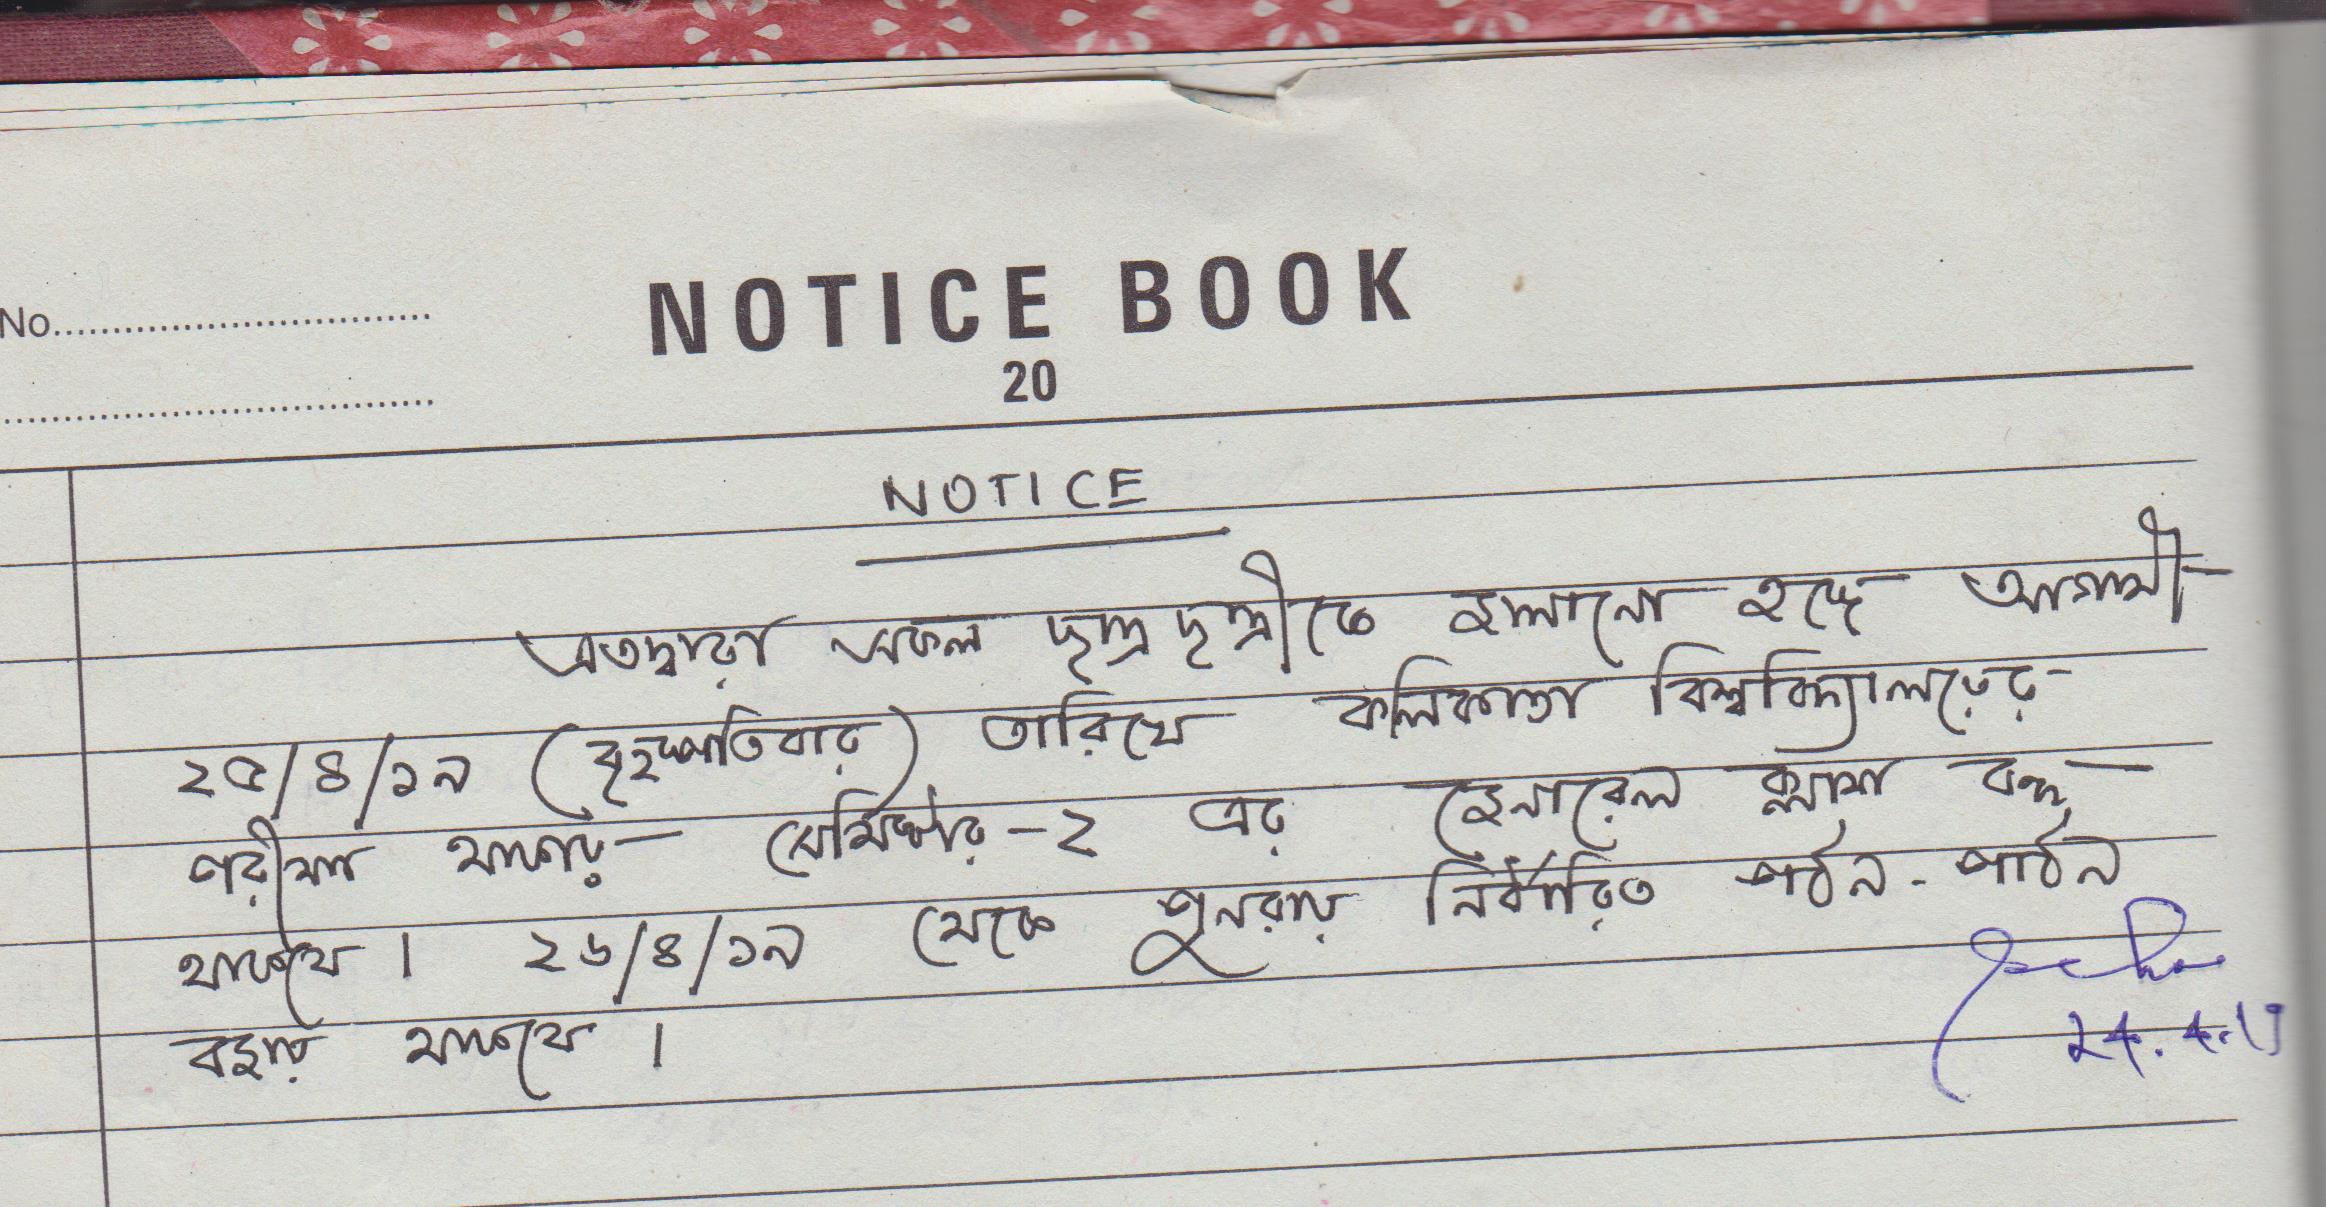 No.................................
NOTICE BOOK
20
NOTICE
এতদ্বারা সকল ছাত্রছাত্রীকে জানানো হচ্ছে আগামী
২৫/৪/১৯ (বৃহস্পতিবার) তারিখে কলিকাতা বিশ্ববিদ্যালয়ের
পরীক্ষা থাকায় সেমিস্টার-২ এর জেনারেল ক্লাস বন্ধ
থাকবে। ২৬/৪/১৯ থেকে পুনরায় নির্ধারিত পঠন-পাঠন
বহাল থাকবে।
24.4.19